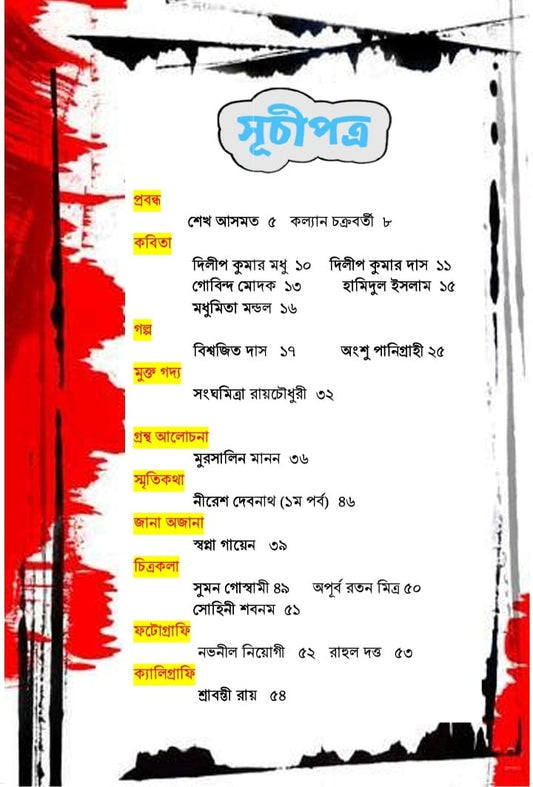 সূচীপত্র
প্রবন্ধ
শেখ আসমত ৫ কল্যান চক্রবর্তী ৮
কবিতা
দিলীপ কুমার মধু ১০ দিলীপ কুমার দাস ১১
গোবিন্দ মোদক ১৩ হামিদুল ইসলাম ১৫
মধুমিতা মন্ডল ১৬
গল্প
বিশ্বজিত দাস ১৭ অংশু পানিগ্রাহী ২৫
মুক্ত গদ্য
সংঘমিত্রা রায়চৌধুরী ৩২
গ্রন্থ আলোচনা
মুরসালিন মানন ৩৬
স্মৃতিকথা
নীরেশ দেবনাথ (১ম পর্ব) ৪৬
জানা অজানা
স্বপ্না গায়েন ৩৯
চিত্রকলা
সুমন গোস্বামী ৪৯ অপূর্ব রতন মিত্র ৫০
সোহিনী শবনম ৫১
ফটোগ্রাফি
নভনীল নিয়োগী ৫২ রাহুল দত্ত ৫৩
ক্যালিগ্রাফি
শ্রাবন্তী রায় ৫৪